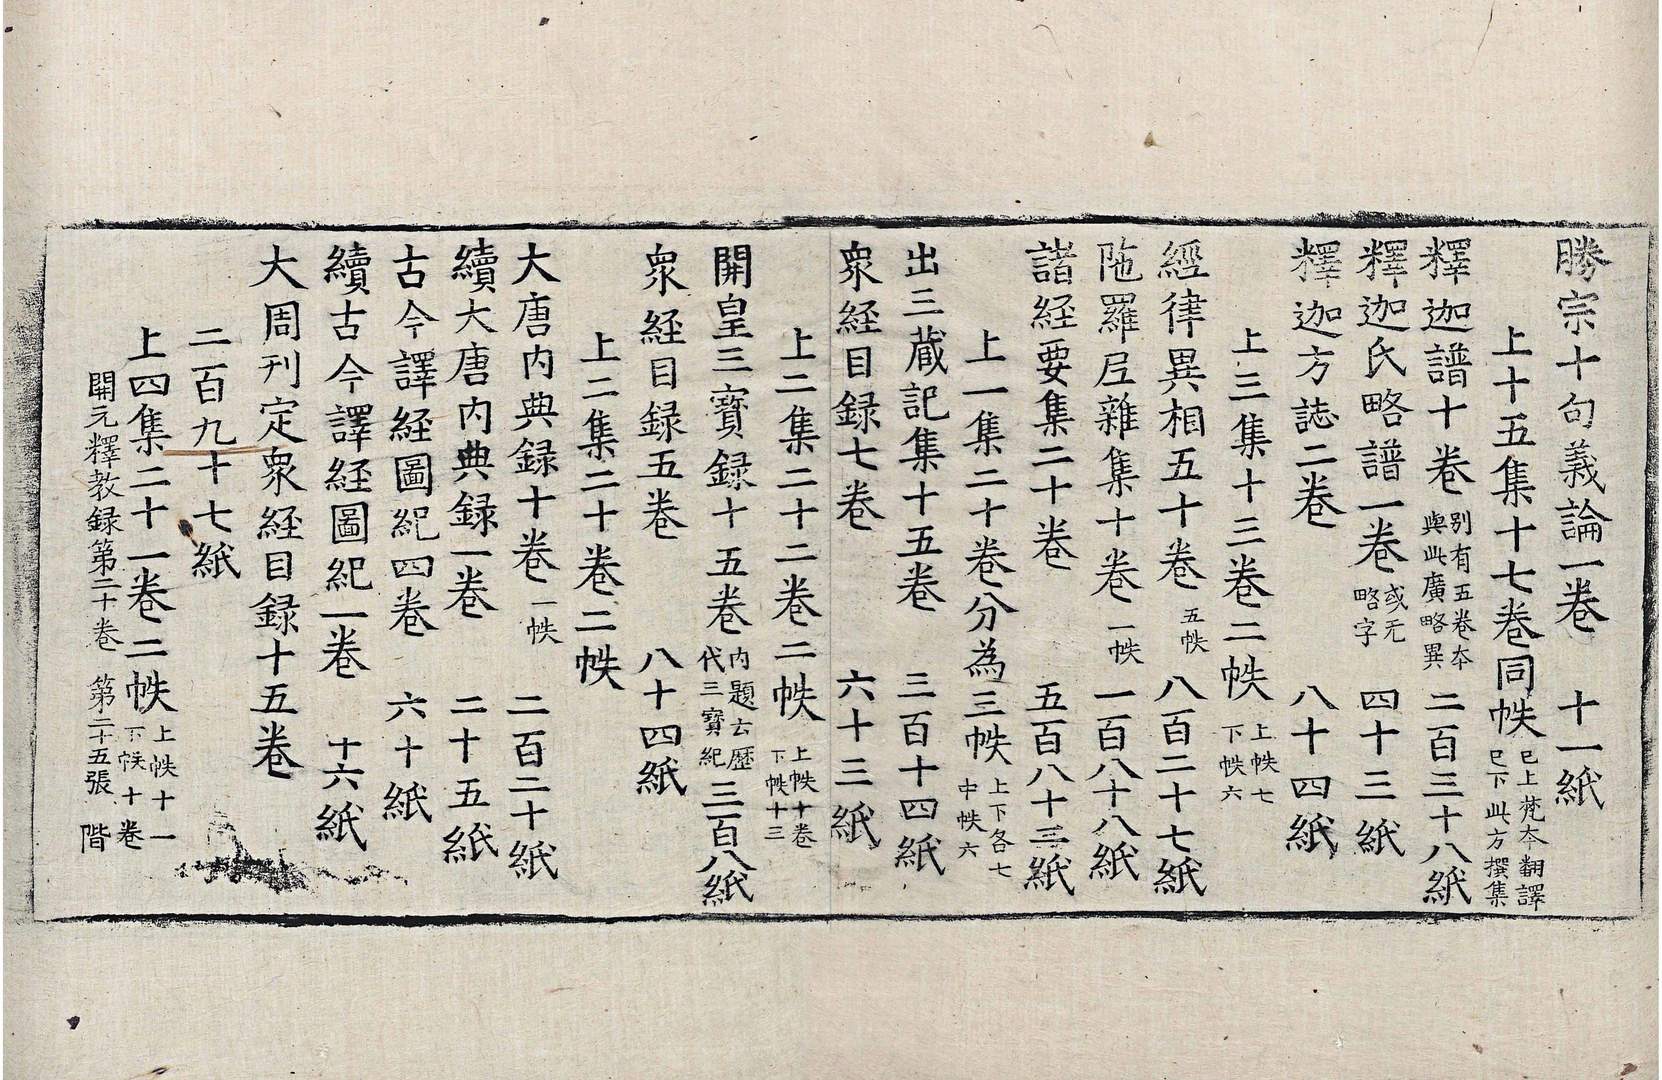 勝宗十句義論一卷　十一紙
上十五集十七卷同帙 已上梵夲翻譯 已下此方撰集
釋迦譜十卷 别有五卷夲 與此廣略異 二百三十八紙
釋迦氏略譜一卷 或无略字 四十三紙
釋迦方誌二卷　八十四紙
上三集十三卷二帙 上帙七 下帙六
經律異相五十卷 五帙 八百二十七紙
陁羅尼雜集十卷 一帙 一百八十八紙
諸経要集二十卷　五百八十三紙
上一集二十卷分為三帙 上下各七 中帙六
出三藏記集十五卷　三百十四紙
衆経目録七卷　六十三紙
上二集二十二卷二帙 上帙十卷 下帙十三
開皇三寳録十五卷 内題云歷代三寳紀 三百八紙
衆経目録五卷　八十四紙
上二集二十卷二帙
大唐内典録十卷 一帙 二百二十紙
續大唐内典録一卷　二十五紙
古今譯経圖紀四卷　六十紙
續古今譯経圖紀一卷　十六紙
大周刊定衆経目録十五卷
二百九十七紙
上四集二十一卷二帙 上帙十一 下帙十卷
開元釋教録第二十卷　第二十五張　階